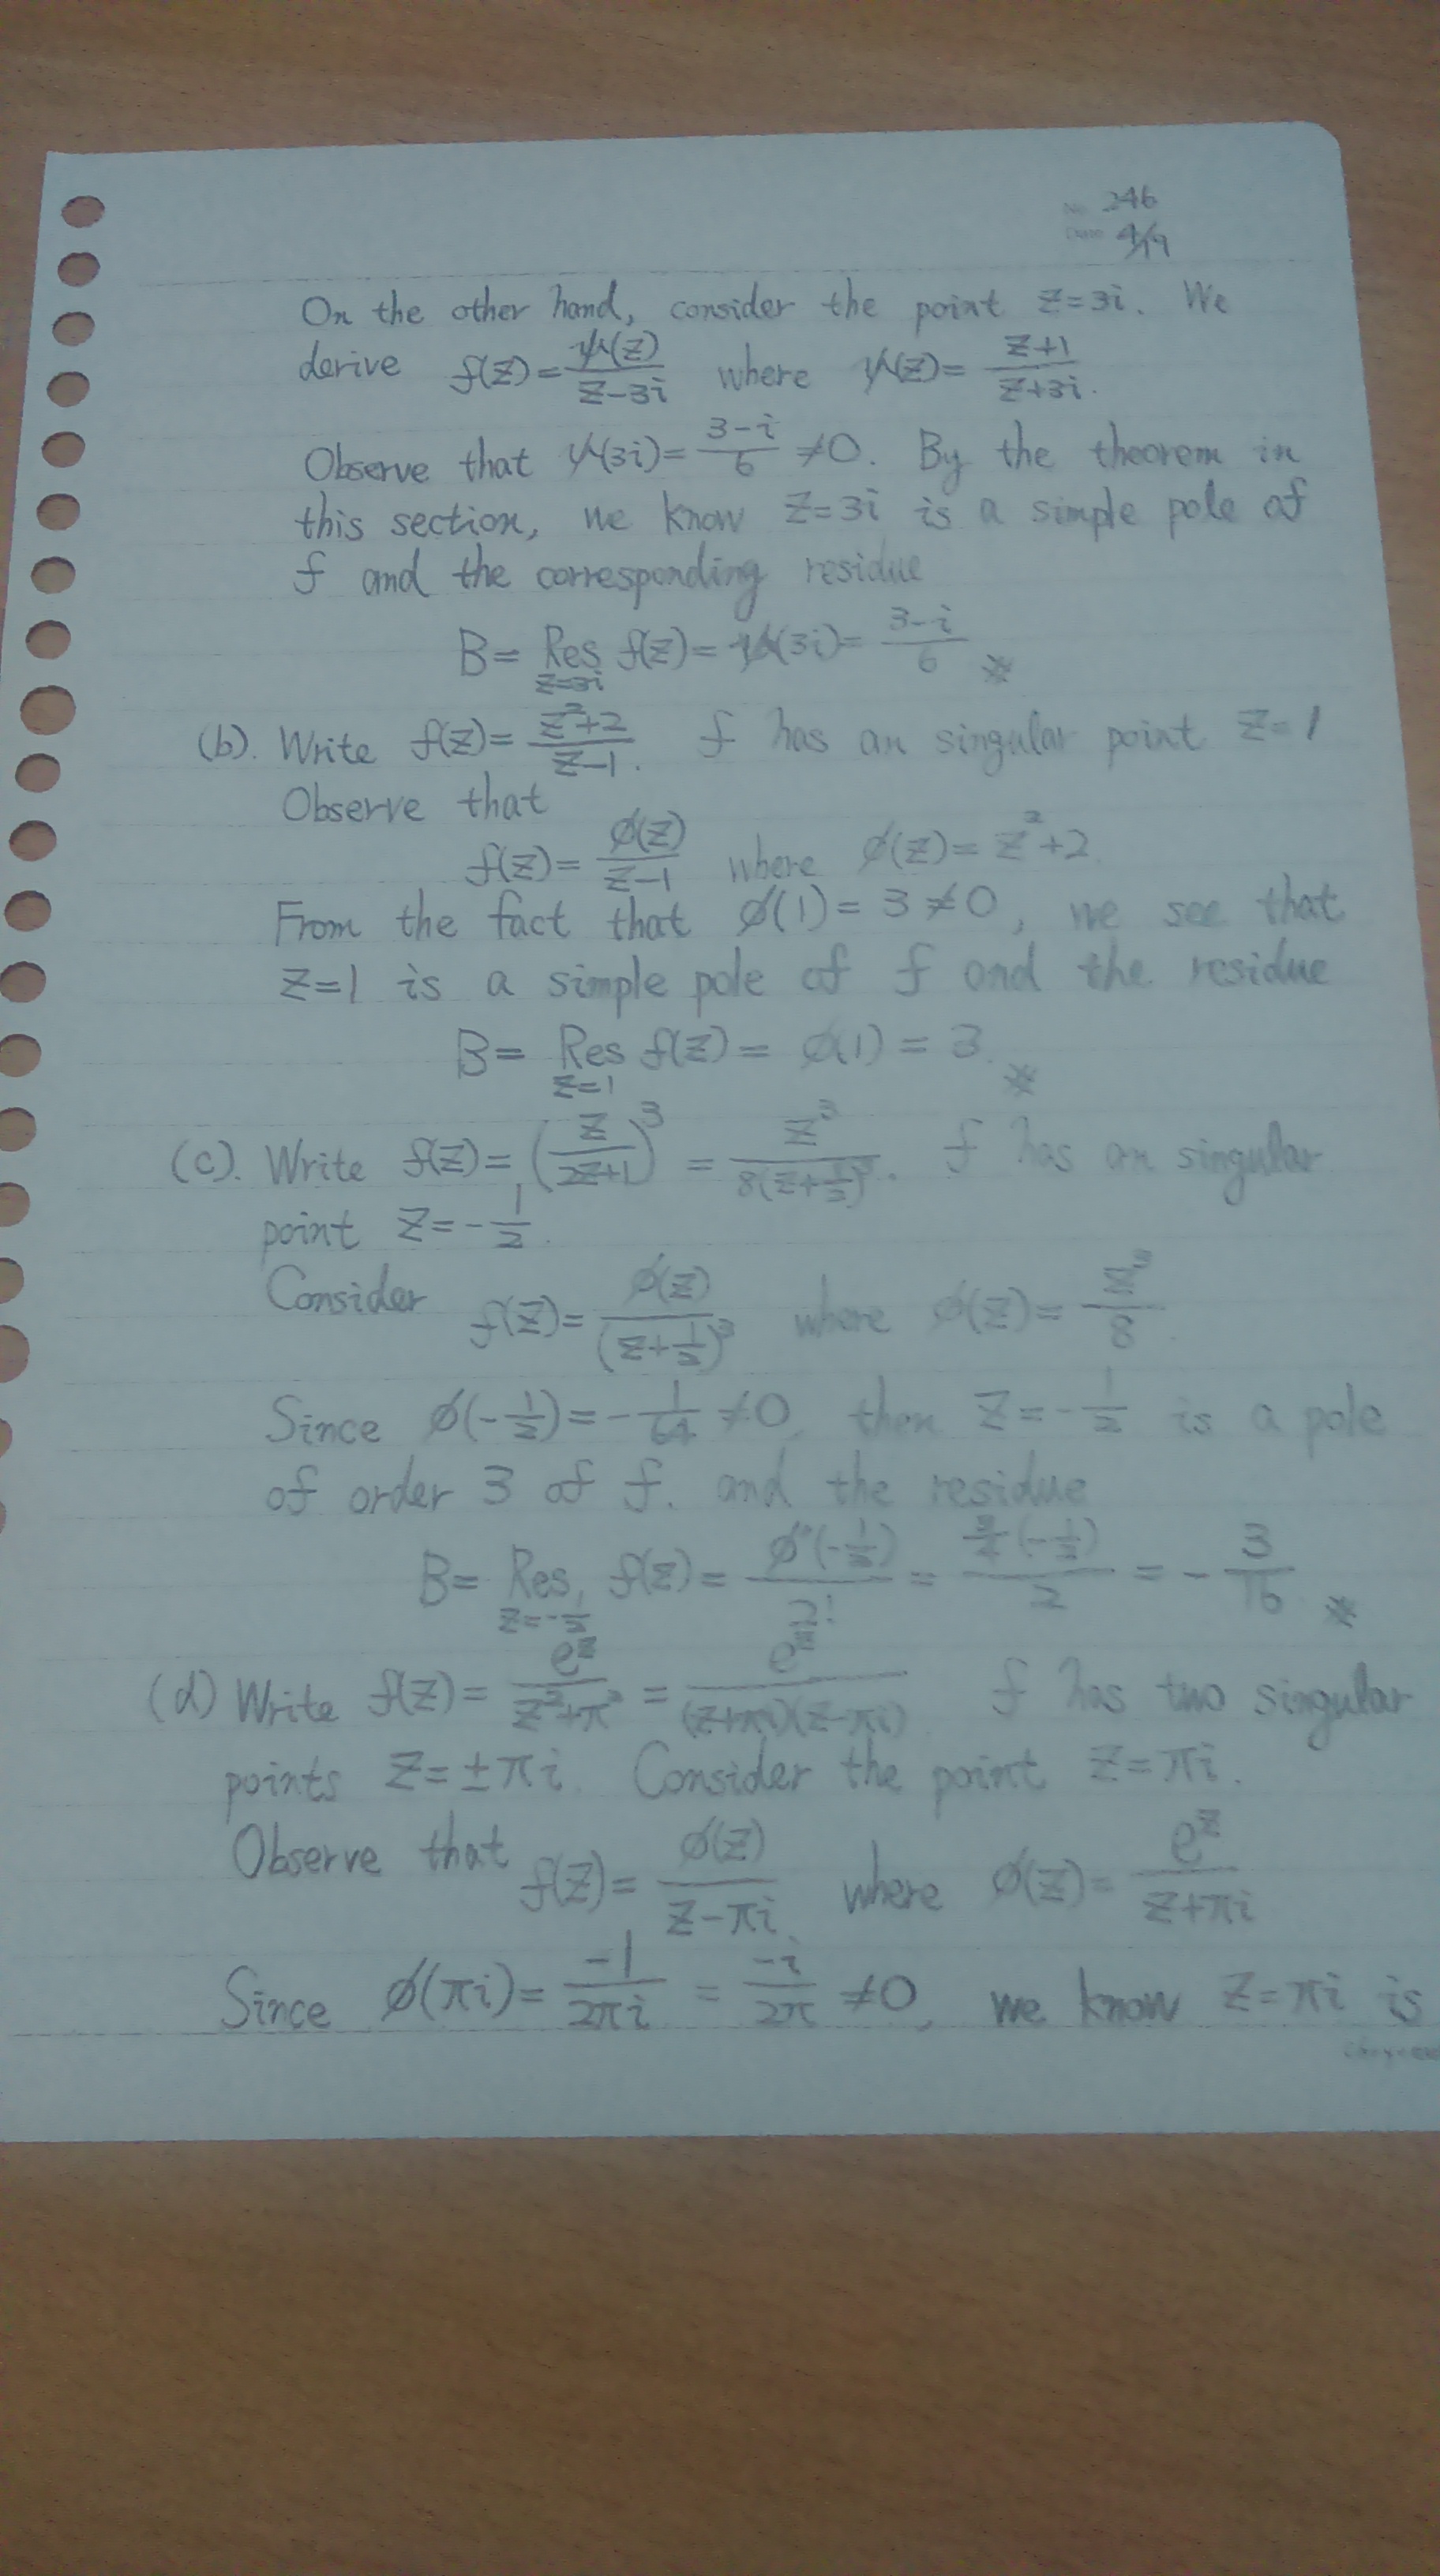 No. 246
Date 4/19
On the other hand, consider the point z=3i. We
derive f(z)=ψ(z)/(z-3i) where ψ(z)=(z+1)/(z+3i).
Observe that ψ(3i)=(3-i)/6 ≠0. By the theorem in
this section, we know z=3i is a simple pole of
f and the corresponding residue
B= Res_{z=3i} f(z)=ψ(3i)=(3-i)/6 ※
(b). Write f(z)=(z²+2)/(z-1). f has an singular point z=1
Observe that
f(z)=φ(z)/(z-1) where φ(z)=z²+2.
From the fact that φ(1)=3≠0, we see that
z=1 is a simple pole of f and the residue
B= Res_{z=1} f(z)= φ(1)=3. ※
(c). Write f(z)=(z/(2z+1))³ = z³/(8(z+1/2)³). f has an singular
point z=-1/2.
Consider f(z)=φ(z)/(z+1/2)³ where φ(z)=z³/8.
Since φ(-1/2)=-1/64≠0, then z=-1/2 is a pole
of order 3 of f. and the residue
B= Res_{z=-1/2} f(z)= φ''(-1/2)/2! = (3/4(-1/2))/2 = -3/16 ※
(d) Write f(z)=e^z/(z²+π²) = e^z/((z+πi)(z-πi)). f has two singular
points z=±πi. Consider the point z=πi.
Observe that f(z)=φ(z)/(z-πi) where φ(z)=e^z/(z+πi)
Since φ(πi)=-1/(2πi) = -i/(2π) ≠0, we know z=πi is